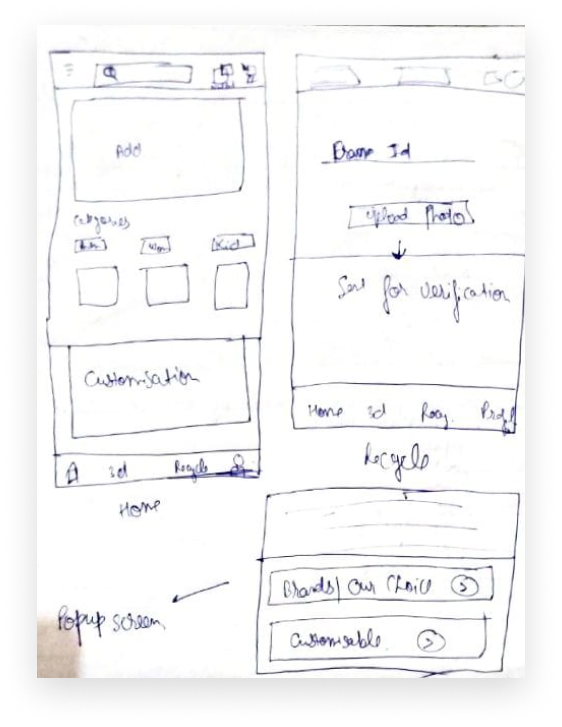 Add
Categories
Men
Wom
Kid
Customisation
3d
Recycle
Home
Frame Id
Upload Photo
Sent for verification
Home 3d Recy. Profl
Recycle
Brands | Our Choice >
Customisable >
Popup screen